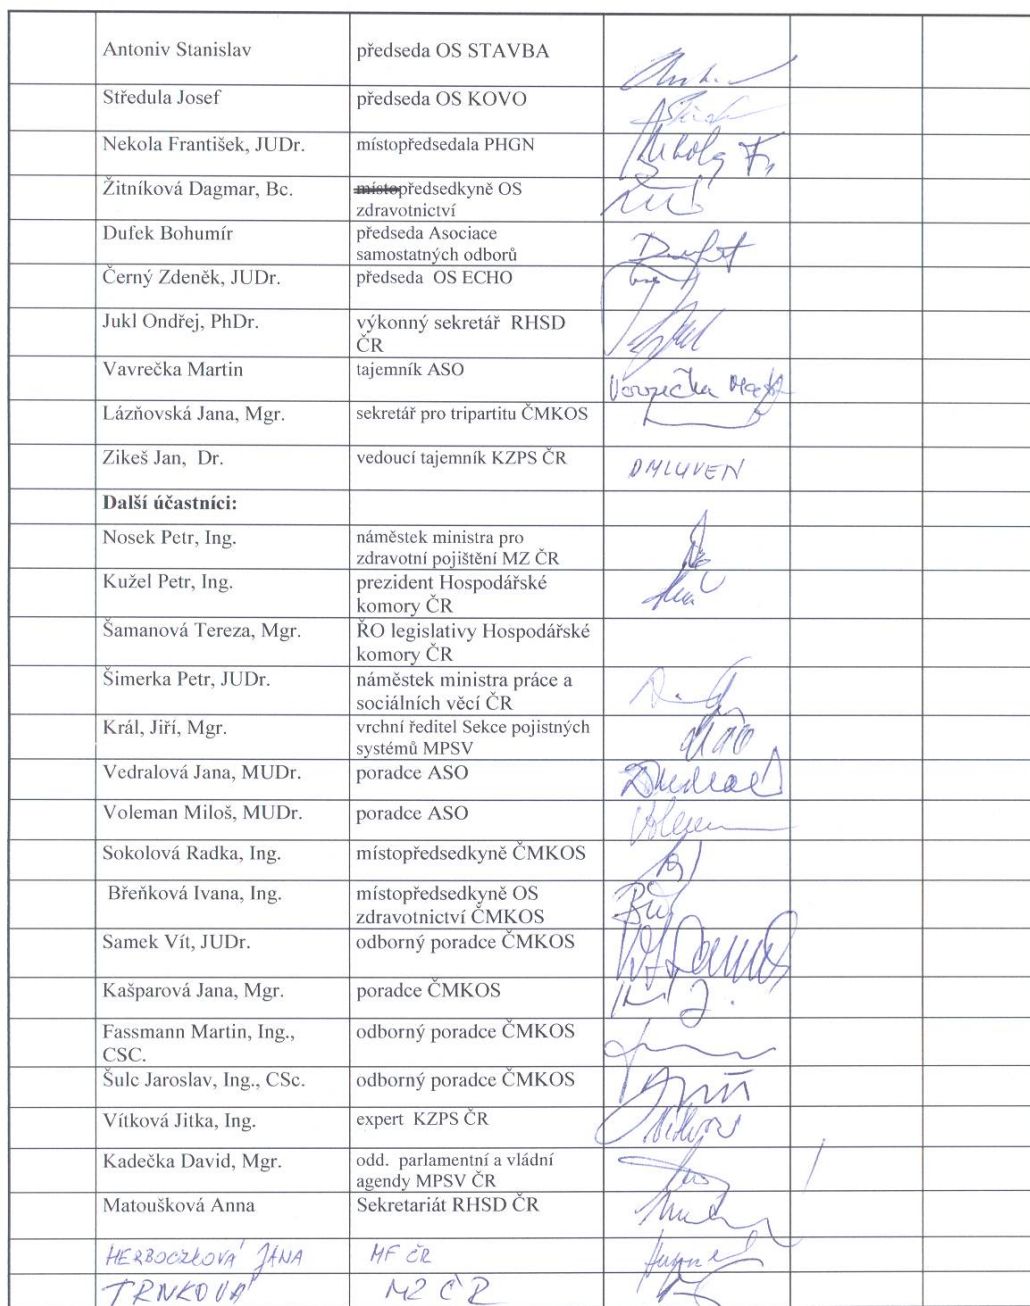 Antoniv Stanislav předseda OS STAVBA
Středula Josef předseda OS KOVO
Nekola František, JUDr. místopředsedala PHGN Nekola Fr.
Žitníková Dagmar, Bc. místopředsedkyně OS
zdravotnictví
Dufek Bohumír předseda Asociace
samostatných odborů
Černý Zdeněk, JUDr. předseda OS ECHO
Jukl Ondřej, PhDr. výkonný sekretář RHSD
ČR
Vavrečka Martin tajemník ASO Vavrečka
Lázňovská Jana, Mgr. sekretář pro tripartitu ČMKOS
Zikeš Jan, Dr. vedoucí tajemník KZPS ČR OMLUVEN
Další účastníci:
Nosek Petr, Ing. náměstek ministra pro
zdravotní pojištění MZ ČR
Kužel Petr, Ing. prezident Hospodářské
komory ČR
Šamanová Tereza, Mgr. ŘO legislativy Hospodářské
komory ČR
Šimerka Petr, JUDr. náměstek ministra práce a
sociálních věcí ČR
Král, Jiří, Mgr. vrchní ředitel Sekce pojistných
systémů MPSV
Vedralová Jana, MUDr. poradce ASO
Voleman Miloš, MUDr. poradce ASO
Sokolová Radka, Ing. místopředsedkyně ČMKOS
Břeňková Ivana, Ing. místopředsedkyně OS
zdravotnictví ČMKOS
Samek Vít, JUDr. odborný poradce ČMKOS
Kašparová Jana, Mgr. poradce ČMKOS
Fassmann Martin, Ing., odborný poradce ČMKOS
CSC.
Šulc Jaroslav, Ing., CSc. odborný poradce ČMKOS
Vítková Jitka, Ing. expert KZPS ČR
Kadečka David, Mgr. odd. parlamentní a vládní
agendy MPSV ČR
Matoušková Anna Sekretariát RHSD ČR
HERBOCZKOVÁ JANA MF ČR
TRNKOVÁ MZ ČR